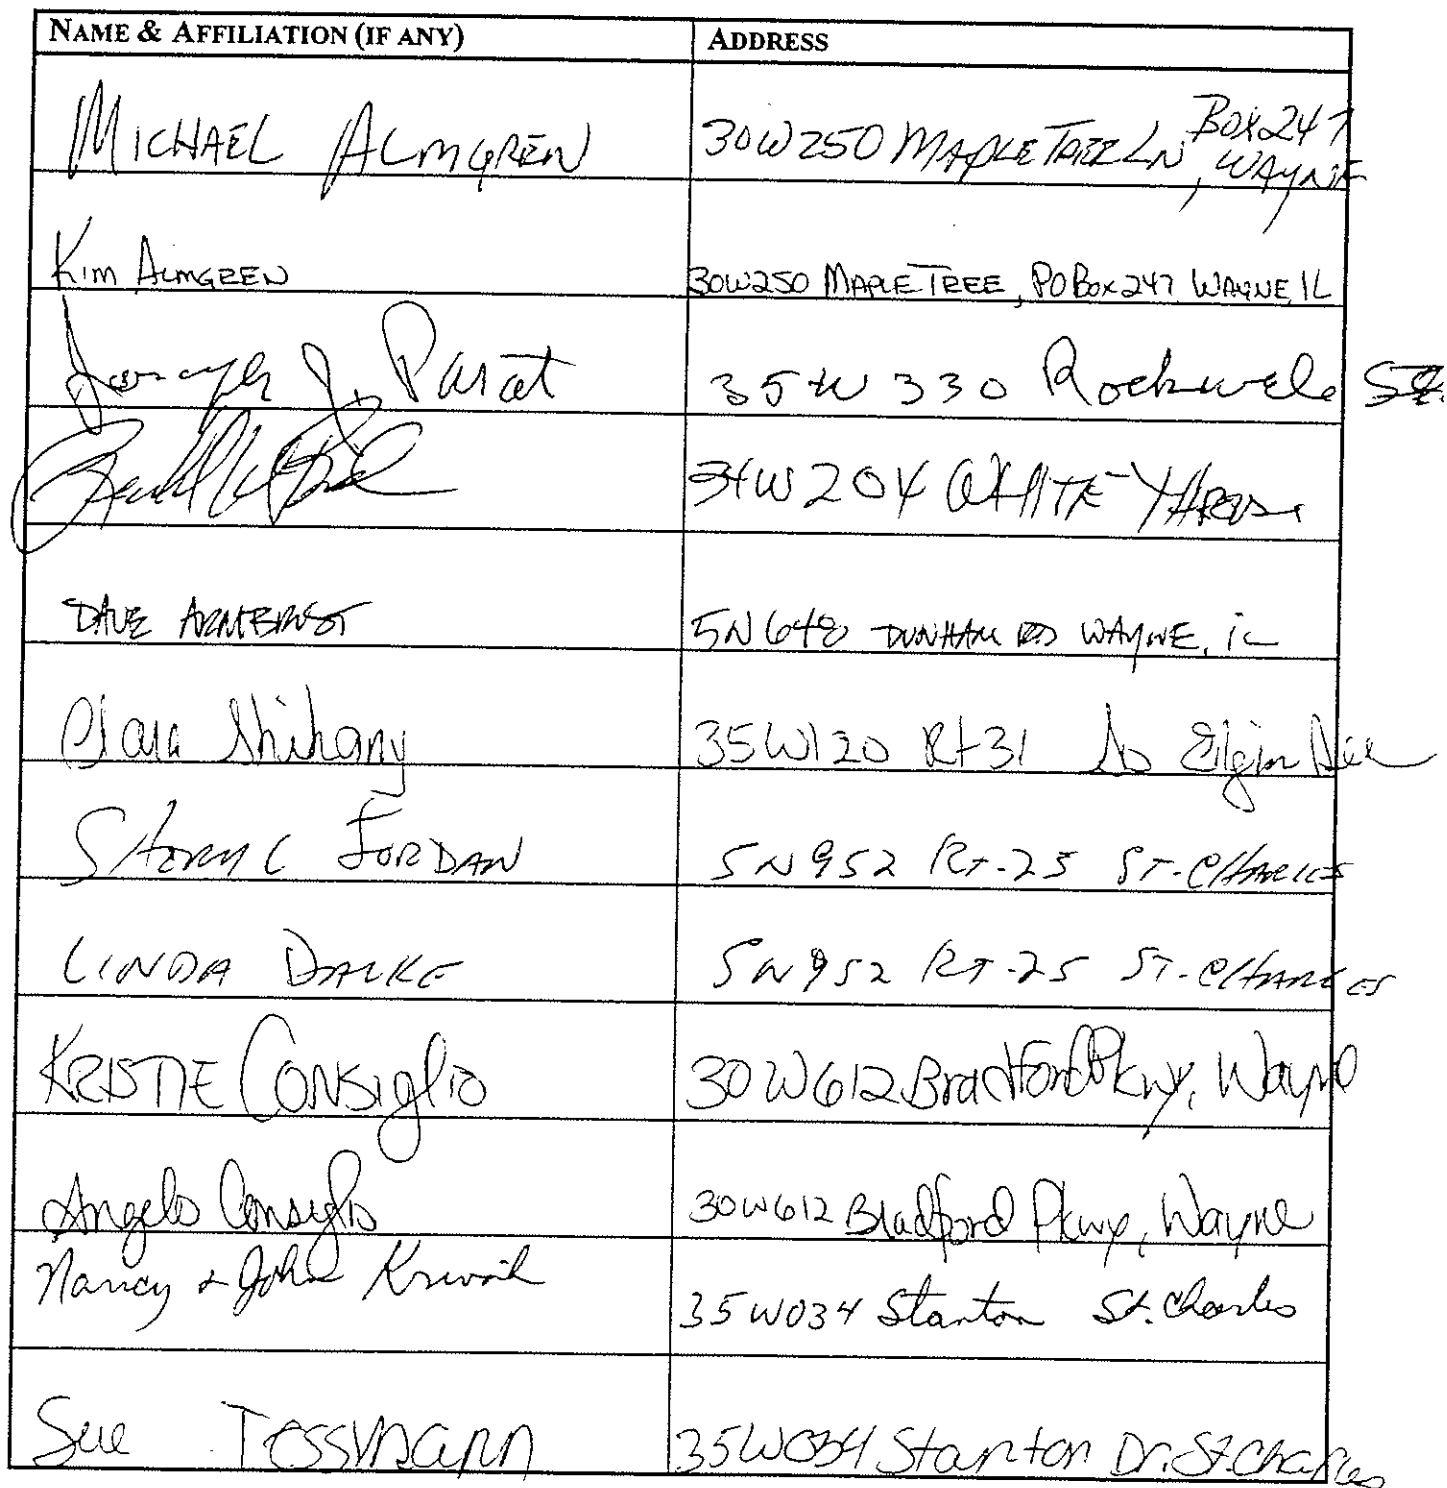 NAME & AFFILIATION (IF ANY) ADDRESS
MICHAEL ALMGREN 30W250 MAPLE TREE LN, BOX 247 WAYNE
KIM ALMGREN 30W250 MAPLE TREE, PO BOX 247 WAYNE, IL
Joseph J. Parat 35W330 Rockwell
34W204 WHITE THORNE
DAVE ARMBRUST 5N648 DUNHAM RD WAYNE, IL
Clara Shihany 35W120 Rt 31 So Elgin
SHERYL JORDAN 5N952 RT-25 ST-CHARLES
LINDA DALKE 5N952 RT-25 ST-CHARLES
KRISTIE Consiglio 30W612 Bradford Pkwy, Wayne
Angelo Consiglio 30W612 Bradford Pkwy, Wayne
Nancy & John 35W034 Stanton St. Charles
Sue Tossmann 35W034 Stanton Dr. St. Charles